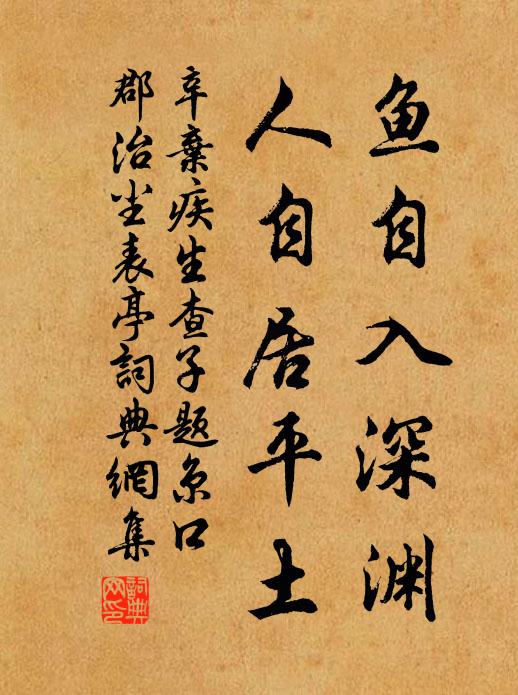 鱼自入深渊
人自居平土
辛棄疾生查子题京口
郡治尘表亭詞典網集
詞典
网印